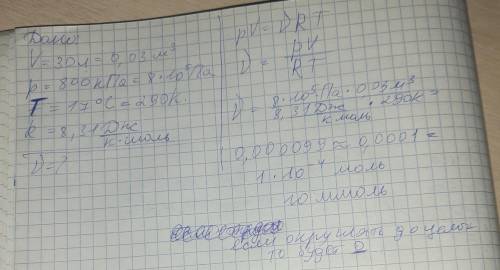 Дано:
V = 30л = 0,03 м³
p = 800кПа = 8·10⁵Па
T = 17°C = 290К
R = 8,31 Дж/К·моль
ν - ?
pV = νRT
ν = pV/RT
ν = 8·10⁵Па·0,03м³/8,31 Дж/К·моль · 290К =
0,000099 ≈ 0,0001 =
1·10⁻⁴ моль
10 ммоль
если округлять до целых
то будет 0